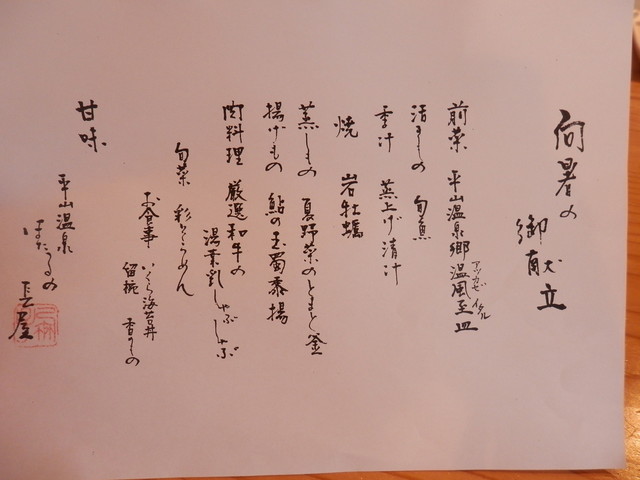 向暑の
御献立
前菜 平山温泉郷温風至皿
活もの 旬魚
季汁 蒸上げ清汁
焼 岩牡蠣
蒸しもの 夏野菜のとまと釜
揚げもの 鮎の玉蜀黍揚
肉料理 厳選和牛の
温素乳しゃぶしゃぶ
旬菜 彩とらめん
お食事 いくら海苔丼
留椀 香のもの
甘味
平山温泉
ほたるの
長屋